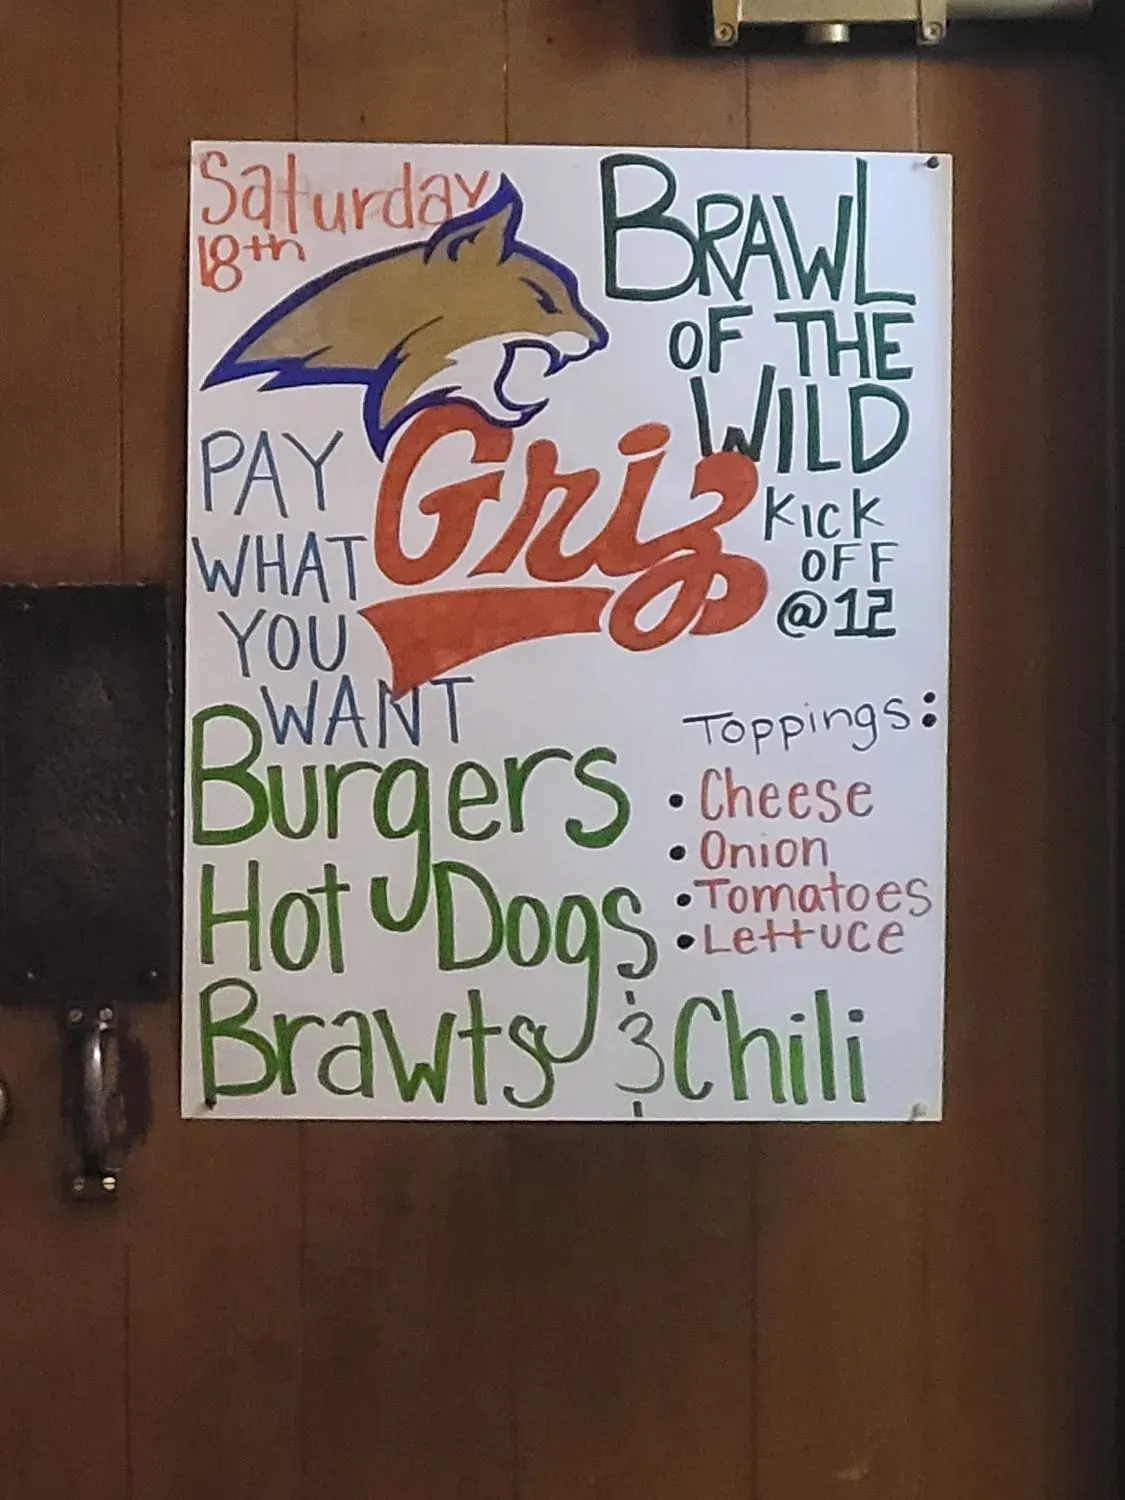 Saturday
18th
BRAWL
OF THE
WILD
Griz
KICK
OFF
@12
PAY
WHAT
YOU
WANT
Burgers
Hot Dogs
Brawts & Chili
Toppings:
• Cheese
• Onion
• Tomatoes
• Lettuce